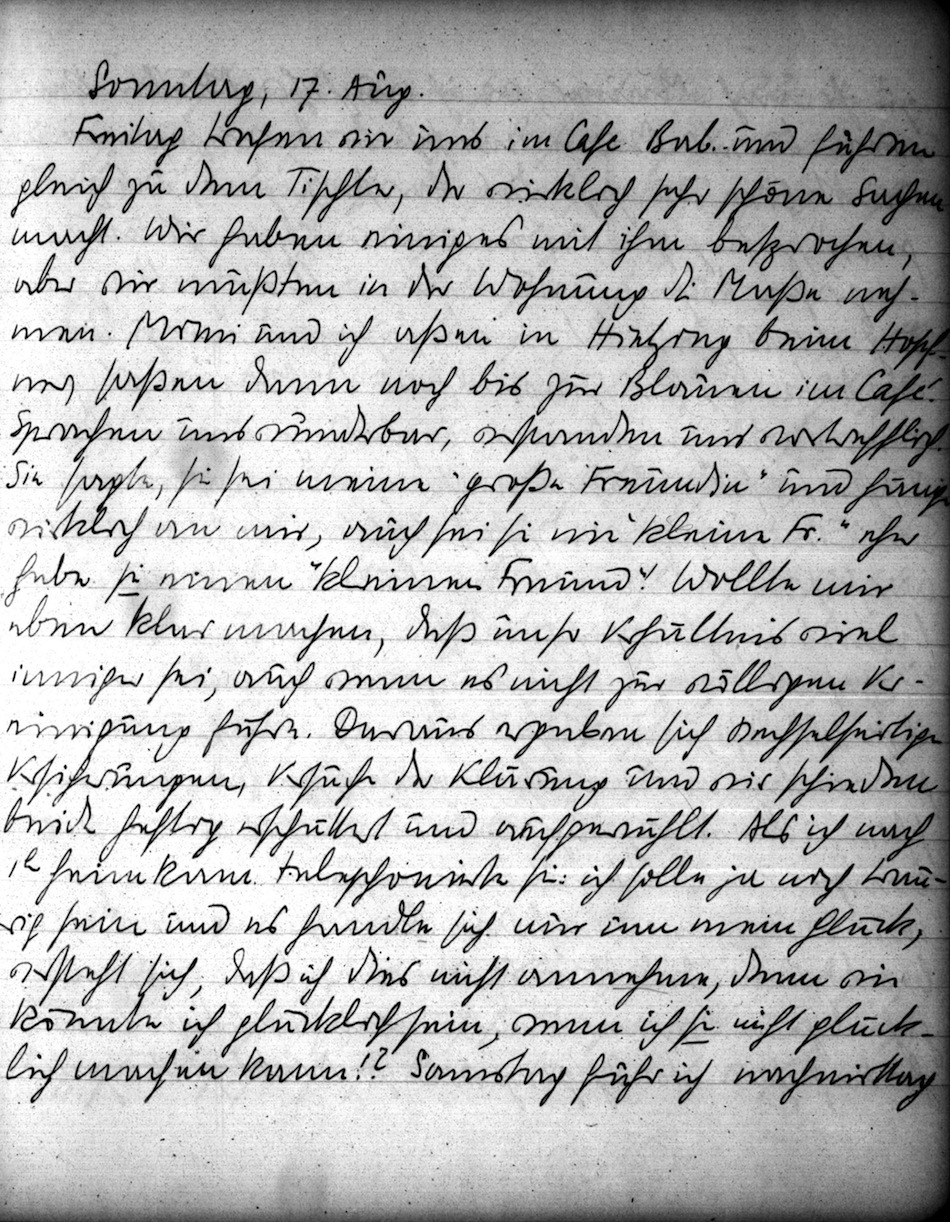 Sonntag, 17. Aug.
Freitag trafen wir uns im Cafe Bab. und fuhren
gleich zu dem Tischler, der wirklich sehr schöne Sachen
macht. Wir haben einiges mit ihm besprochen,
aber wir mußten in der Wohnung die Maße neh-
men. Mimi und ich aßen in Hietzing beim Hopf-
ner, saßen dann noch bis zur Blauen im Café.
Sprachen uns wunderbar, verstanden uns vortrefflich.
Sie sagte, sie sei meine "große Freundin" und hänge
wirklich an mir, auch sei sie nie "kleine Fr." eher
habe sie einen "kleinen Freund". Wollte mir
eben klar machen, daß unser Verhältnis viel
inniger sei, auch wenn es nicht zur völligen Ver-
einigung führe. Daraus ergaben sich wechselseitige
Versicherungen, Versuche der Klärung und wir schieden
beide heftig erschüttert und aufgewühlt. Als ich nach
1h heimkam telephonierte sie: ich solle ja nicht trau-
rig sein und es handle sich nur um mein Glück,
versteht sich, daß ich dies nicht annehme, denn wie
könnte ich glücklich sein, wenn ich sie nicht glück-
lich machen kann!? Samstag fuhr ich nachmittag